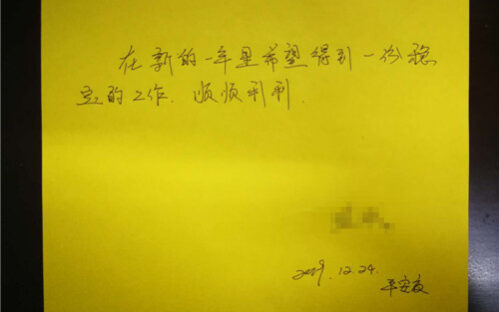 在新的一年里希望得到一份稳
定的工作.顺顺利利.
2019.12.24.
平安夜